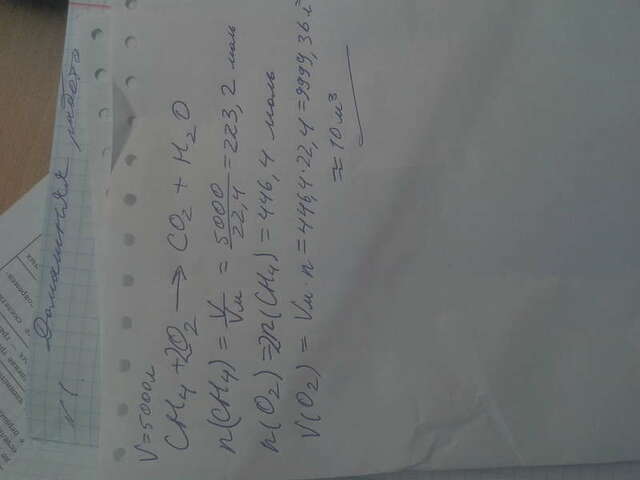 Домашняя работа
№1.
V=5000л
CH₄ + 2O₂ → CO₂ + H₂O
n(CH₄) = V/Vм = 5000/22,4 = 223,2 моль
n(O₂) = 2n(CH₄) = 446,4 моль
V(O₂) = Vм · n = 446,4·22,4 = 9999,36 л
≈ 10 м³